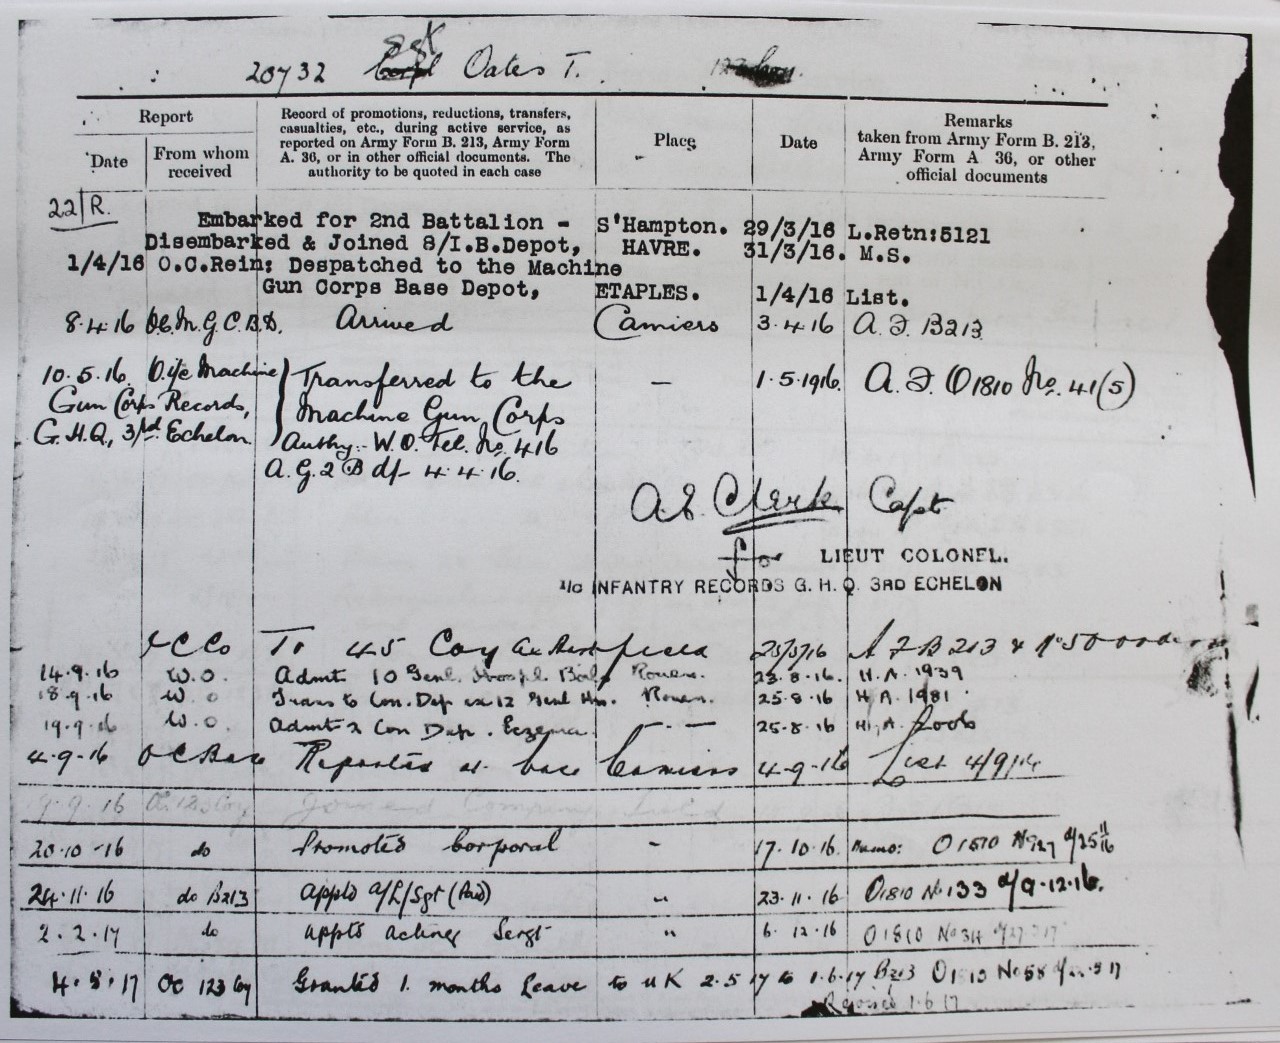 20732 Sgt Oates T.
Report
Date
From whom received
Record of promotions, reductions, transfers, casualties, etc., during active service, as reported on Army Form B. 213, Army Form A. 36, or in other official documents. The authority to be quoted in each case
Place
Date
Remarks taken from Army Form B. 213, Army Form A 36, or other official documents
22/R.
Embarked for 2nd Battalion - S'Hampton. 29/3/16 L.Retn:5121
Disembarked & Joined 8/I.B.Depot, HAVRE. 31/3/16. M.S.
1/4/16 O.C.Rein: Despatched to the Machine
Gun Corps Base Depot, ETAPLES. 1/4/16 List.
8.4.16 Oc. M.G.C.B.D. Arrived Camiers 3.4.16 A.F. B213
10.5.16. O i/c Machine Transferred to the — 1.5.1916. A.F. O1810 No. 41(5)
Gun Corps Records, Machine Gun Corps
G.H.Q., 3rd Echelon. Authy:- W.O. Tel. No. 416
A.G.2 B df 4.4.16.
A.E. Clerk Capt
for LIEUT COLONEL.
I/C INFANTRY RECORDS G.H.Q. 3RD ECHELON
To 45 Coy field A F B 213
14.9.16 W.O. Admt 10 Genl. Hospl. Rouen. 23.8.16. H.A. 1939
18.9.16 W.O. Trans to Con. Dep ex 12 Genl Hos. Rouen. 25.8.16 H.A. 1981
19.9.16 W.O. Admt 2 Con Dep. Eczema. " — " 25.8.16 H.A.
4.9.16 OC Base Reported at base Camiers 4.9.16 List 4/9/16
9.9.16 Oc 123 Coy Joined Company Field
20.10-16 do Promoted Corporal - 17.10.16. Memo: O1810
24.11.16 do B213 Apptd a/L/Sgt (Paid) " 23.11.16 O1810 No. 133 d/9.12.16.
2.2.17 do Apptd acting Sergt " 6.12.16 O1810
4.5.17 OC 123 Coy Granted 1 months Leave to UK 2.5.17 to 1.6.17 B213
Rejoined 1.6.17